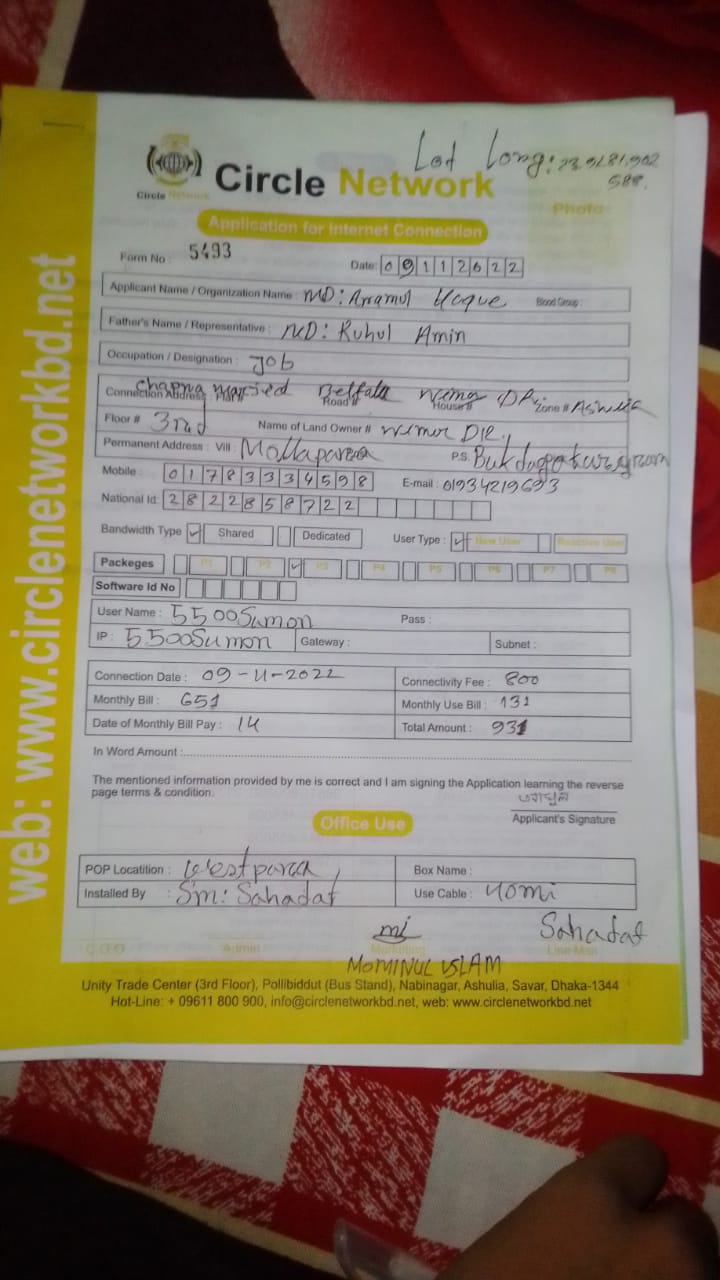 Lat Long: 23.9281.902
588.
Circle Network
Circle Network
Application for Internet Connection
Photo
Form No : 5493
Date: 09112022
Applicant Name / Organization Name : MD: Haque Blood Group :
Father's Name / Representative : MD: Ruhul Amin
Occupation / Designation : Job
Connection Address : Road # House # Zone #
Floor # 3rd Name of Land Owner #
Permanent Address : Vill : Mollaparea P.S.
Mobile : 01783334598 E-mail : 01934219693
National Id: 2822858722
Bandwidth Type ✓ Shared Dedicated User Type : ✓ New User Reactive User
Packeges P1 P2 ✓ P3 P4 P5 P6 P7 P8
Software Id No
User Name : 5500Sumon Pass :
IP : 5500Sumon Gateway : Subnet :
Connection Date : 09-11-2022 Connectivity Fee : 800
Monthly Bill : 651 Monthly Use Bill : 131
Date of Monthly Bill Pay : 14 Total Amount : 931
In Word Amount :
The mentioned information provided by me is correct and I am signing the Application learning the reverse
page terms & condition.
Applicant's Signature
Office Use
POP Locatition : Westparea Box Name :
Installed By : Sm: Sahadat Use Cable : 40mi
Sahadat
C.O.O Admin Marketing Line Man
MOMINUL ISLAM
Unity Trade Center (3rd Floor), Pollibiddut (Bus Stand), Nabinagar, Ashulia, Savar, Dhaka-1344
Hot-Line: + 09611 800 900, info@circlenetworkbd.net, web: www.circlenetworkbd.net
web: www.circlenetworkbd.net